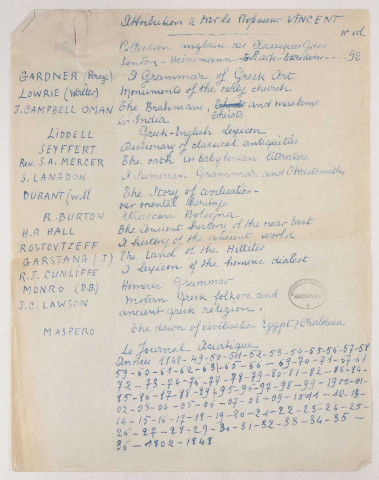 Attribution à Mr le Professeur VINCENT
nb vol.
Collection anglaise des Classiques Grecs
London - Heinemann 92
GARDNER (Percy) A Grammar of Greek Art
LOWRIE (Walter) Monuments of the early church
J. CAMPBELL OMAN The Brahmans, Theists and muslims
in India
LIDDELL Greek-English Lexicon
SEYFFERT Dictionary of classical antiquities
Rev. S.A. MERCER The oath in babylonian literature
S. LANGDON A Sumerian Grammar and Chrestomathy
DURANT (will The Story of civilisation -
our oriental heritage
R. BURTON Etruscan Bologna
H.R HALL The Ancient history of the near East
ROSTOVTZEFF A history of the ancient world
GARSTANG (J) The Land of the Hittites
R.J. CUNLIFFE A Lexicon of the homeric dialect
MONRO (D.B) Homeric Grammar
J.C. LAWSON Modern Greek folklore and
ancient greek religion.
MASPERO The dawn of civilisation Egypt & Chaldaea
Le Journal Asiatique
Années 1848-49-50-51-52-53-54-55-56-57-58
59-60-61-62-63-65-66-69-70-71-
72-73-74-76-77-78-79-80-81-82-83-84-
85-86-87-88-89-95-96-97-98-99-1900-01-
02-03-04-05-06-07-08-09-1011-12-13-
14-15-16-17-18-19-20-21-22-23-24-25-
26-27-28-29-30-31-32-33-34-35-
36-1802-1848
ARCHIVES